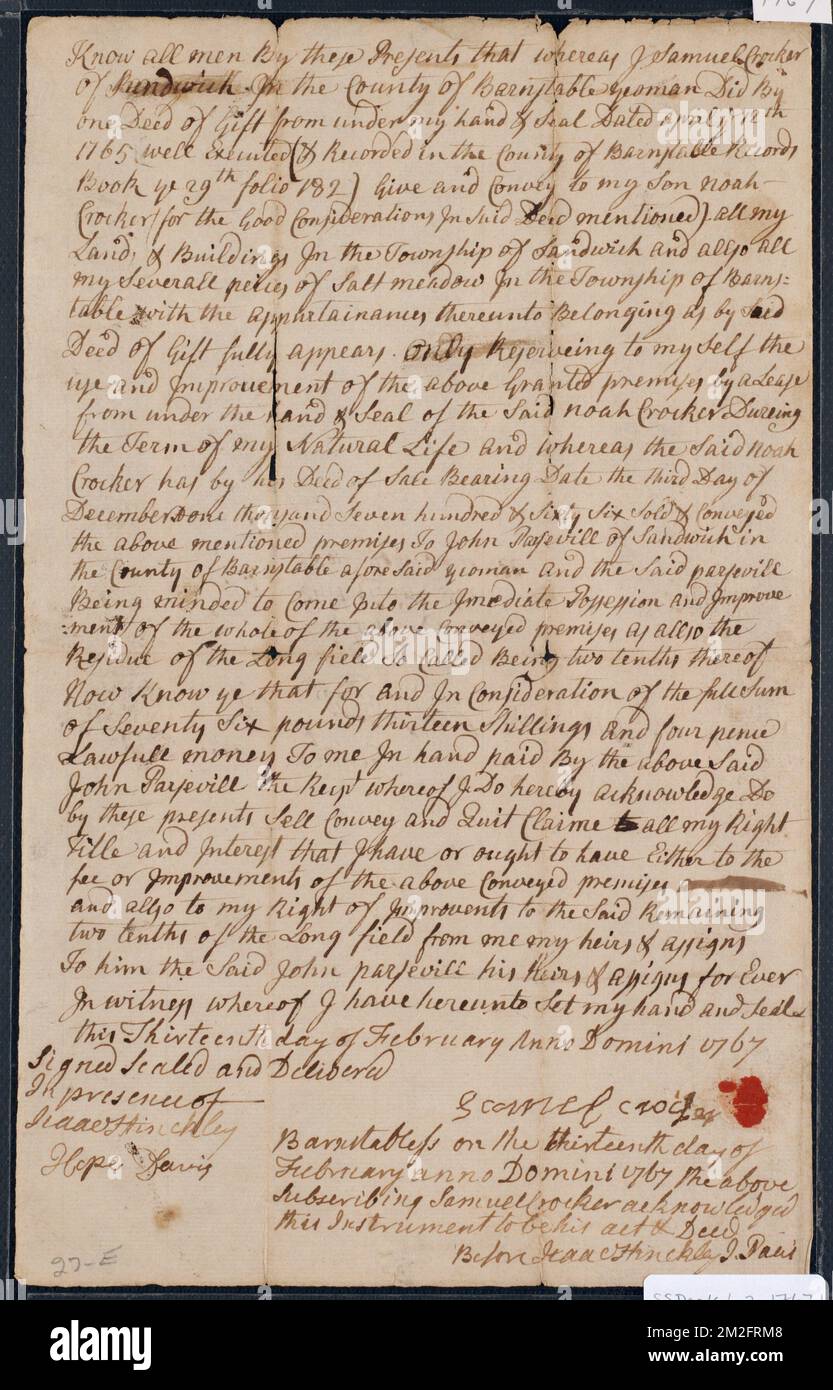 1767
Know all men By these Presents that whereas I Samuel Crocker
of Sandwich In the County of Barnstable yeoman Did By
one Deed of Gift from under my hand & Seal Dated April ye 12th
1765 (well Executed (& Recorded in the County of Barnstable Records
Book ye 29th folio 182) Give and Convey to my Son Noah
Crocker (for the Good Considerations In Said Deed mentioned) all my
Land, & Buildings In the Township of Sandwich and allso all
my Severall peices of Salt meadow In the Township of Barns=
table with the appurtainances thereunto Belonging as by Said
Deed of Gift fully appears. only Reserveing to my Self the
use and Improvement of the above Granted premises by a Lease
from under the hand & Seal of the Said Noah Crocker Dureing
the Term of my Natural Life and whereas the Said Noah
Crocker has by his Deed of Sale Bearing Date the third Day of
December one thousand Seven hundred & Sixty Six Sold & Conveyed
the above mentioned premises To John Parsevill of Sandwich in
the County of Barnstable afore Said yeoman and the Said parsevill
Being minded to Come Into the Imediate Possession and Improve
=ment of the whole of the above Conveyed premises as allso the
Residue of the Long field So Called Being two tenths thereof
Now Know ye that for and In Consideration of the full Sum
of Seventy Six pounds thirteen Shillings and four pence
Lawfull money To me In hand paid By the above Said
John Parsevill the Recpt whereof I Do hereby acknowledge Do
by these presents Sell Convey and Quit Claime all my Right
Title and Interest that I have or ought to have Either to the
fee or Improvements of the above Conveyed premises
and allso to my Right of Improvents to the Said Remaining
two tenths of the Long field from me my heirs & assigns
To him the Said John parsevill his Heirs & assigns for Ever
In witness whereof I have hereunto Set my hand and Seal
this Thirteenth day of February Anno Domini 1767
Signed Sealed and Delivered
In presence of
Isaac Hinckley
Hope Davis
Samuel Crocker
Barnstable ss on the thirteenth day of
February anno Domini 1767 the above
Subscribing Samuel Crocker acknowledged
this Instrument to be his act & Deed
Before Isaac Hinckley J. Pacis
27-E
alamy
Image ID: 2M2FRM8
www.alamy.com